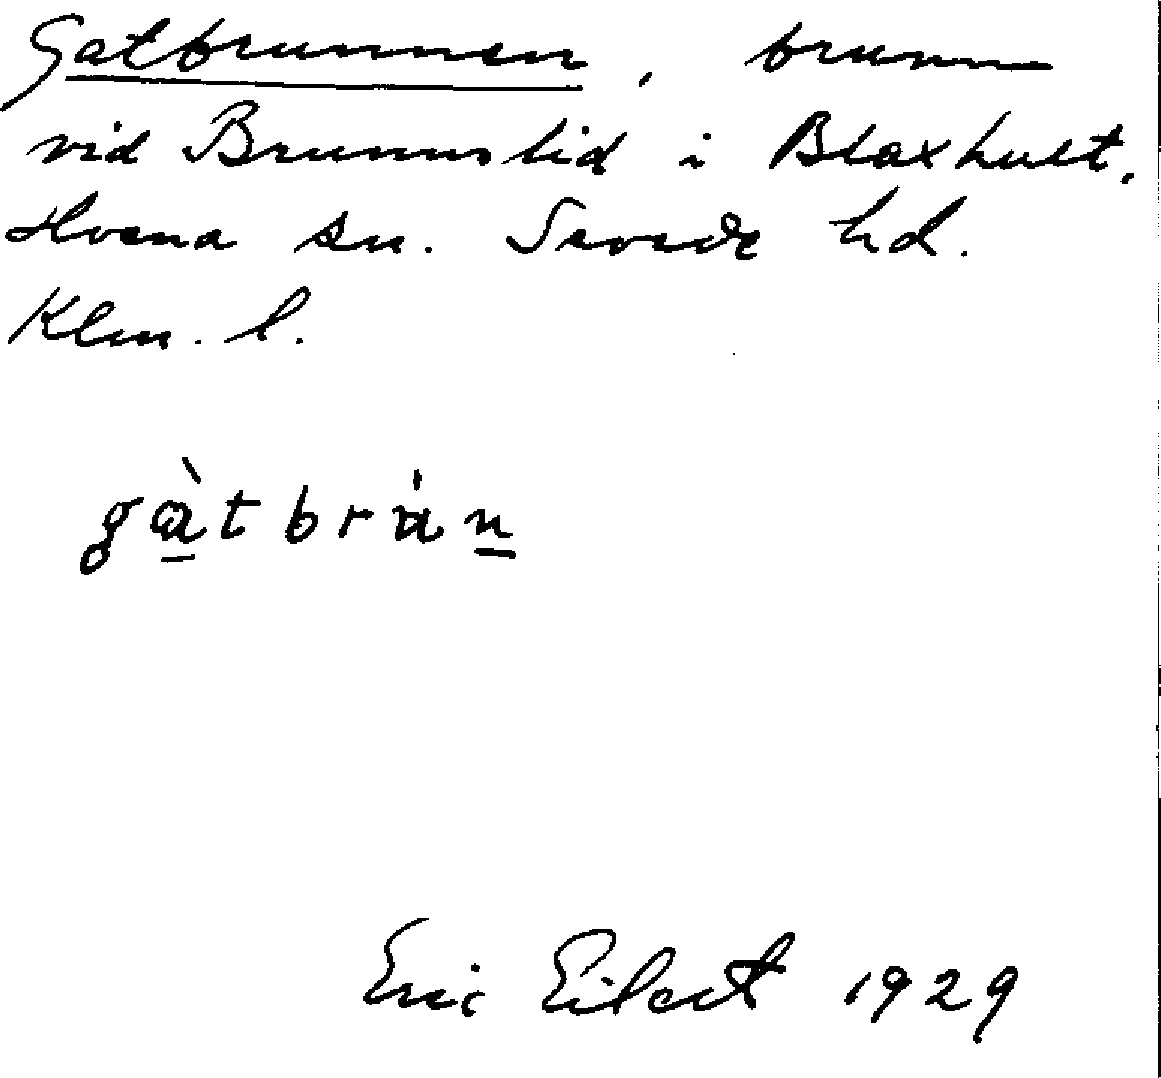 Gatbrunnen, brunn
vid Brunnslid i Blaxhult.
Hvena sn. Sevede hd.
Klm. l.
gàtbrùn
Eric Eilert 1929